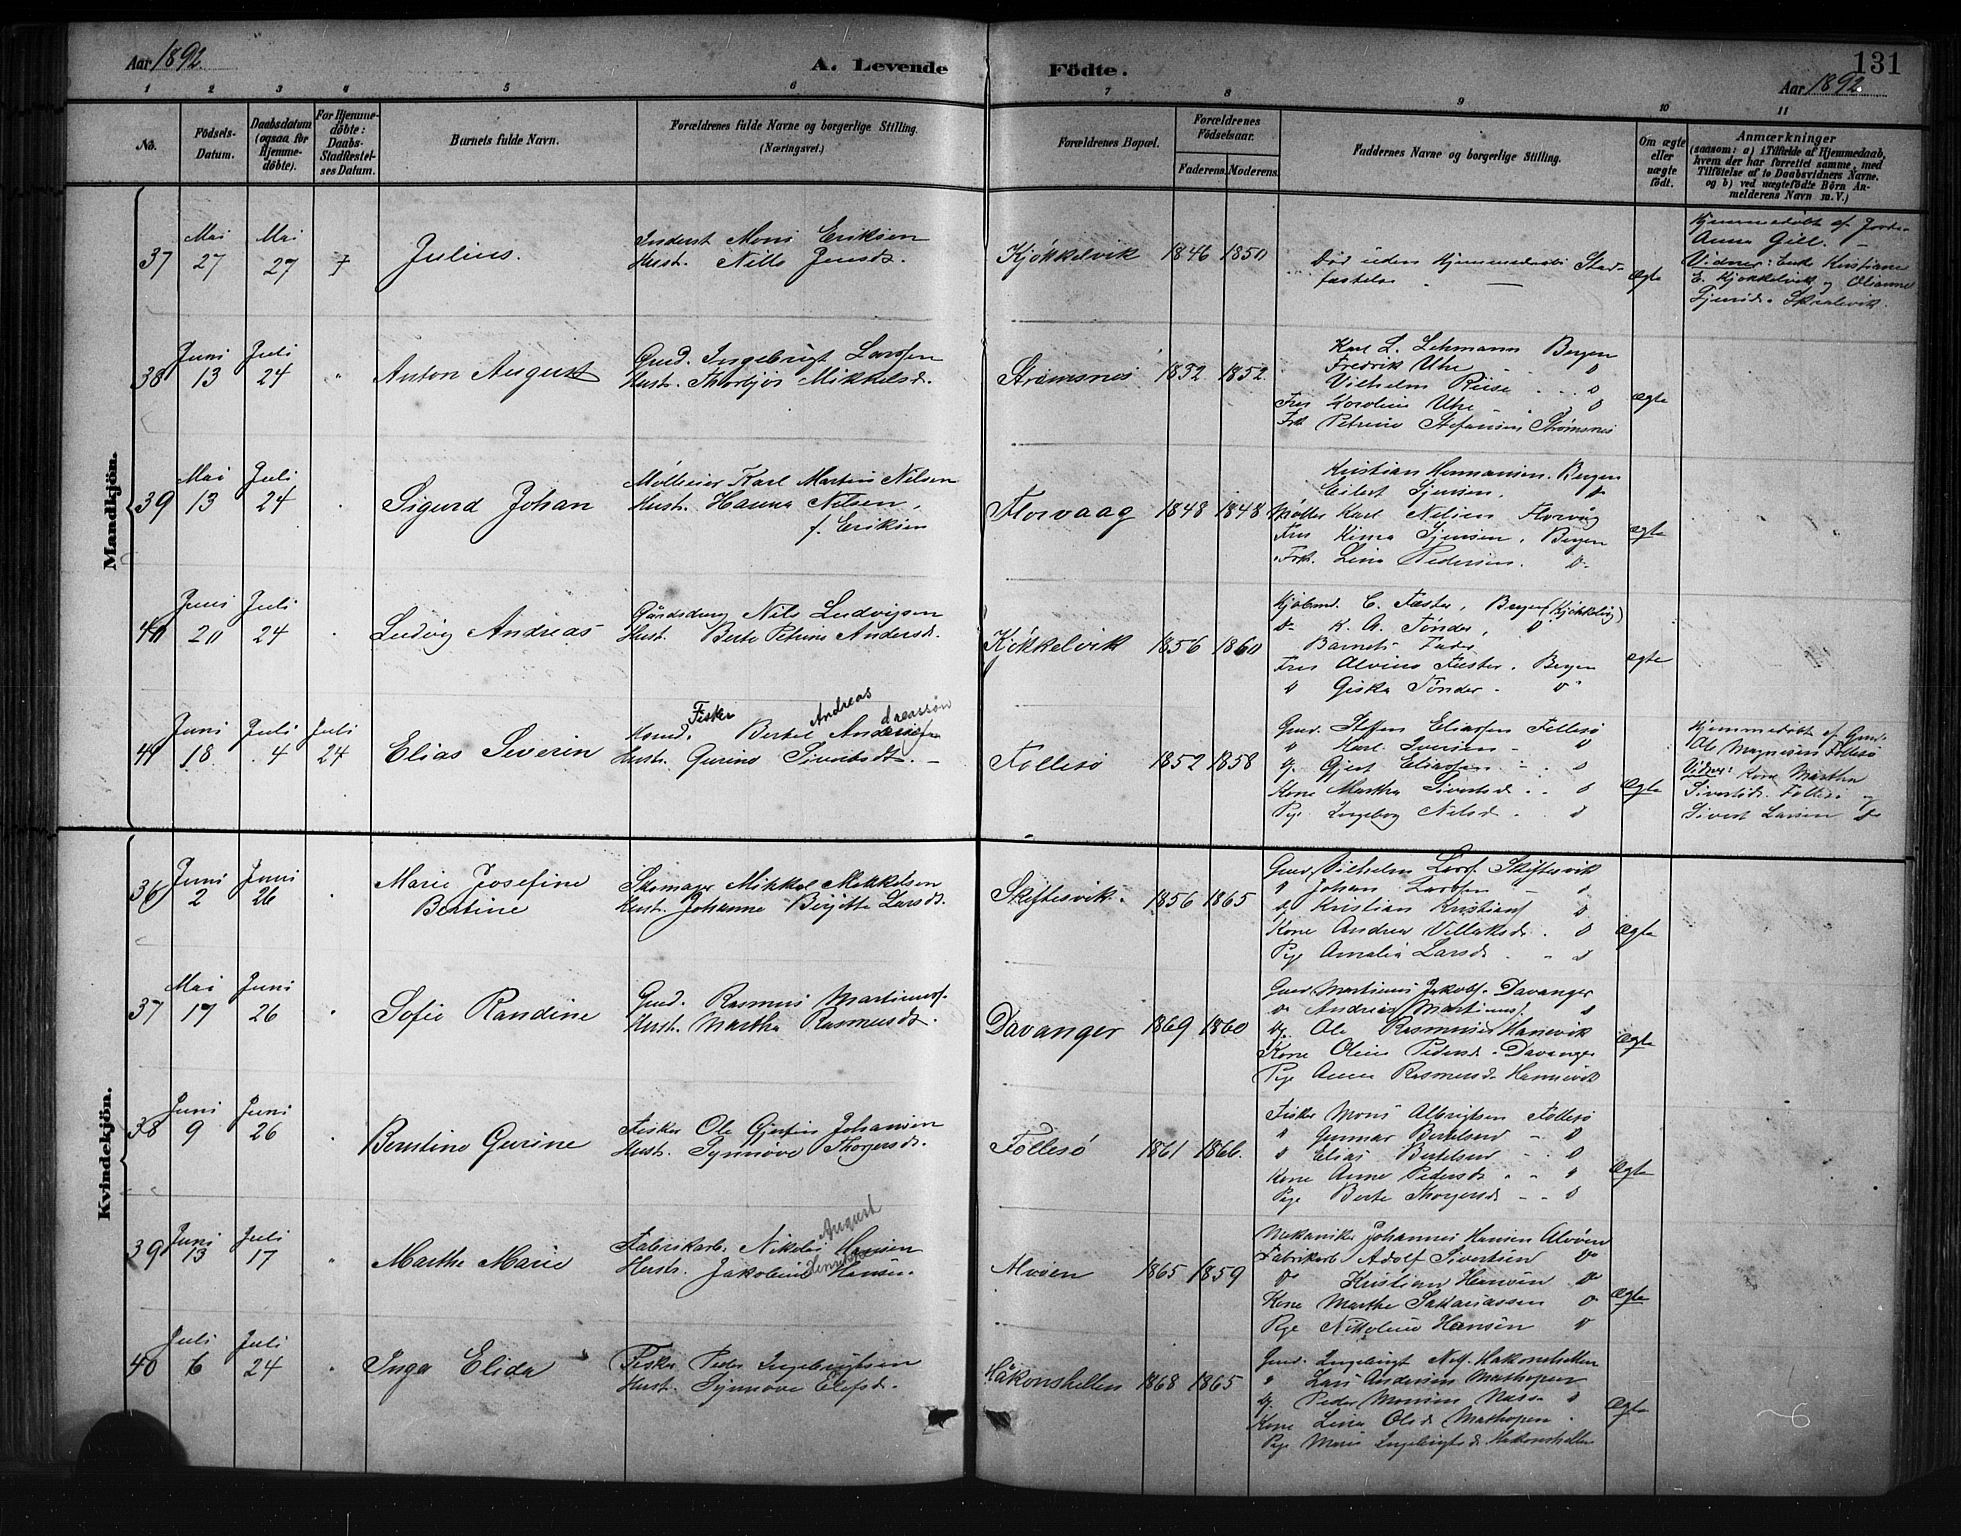 Aar 1892
A. Levende Födte.
131
Aar 1892
1 2 3 4 5 6 7 8 9 10 11
No.
Födsels-Datum.
Daabsdatum (ogsaa for Hjemmedöbte).
For Hjemmedöbte: Daabs-Stadfæstelses Datum.
Barnets fulde Navn.
Forældrenes fulde Navne og borgerlige Stilling.
(Næringsvei.)
Forældrenes Bopæl.
Forældrenes Födselsaar.
Faderens. Moderens.
Faddernes Navne og borgerlige Stilling.
Om ægte eller uægte födt.
Anmærkninger
(saasom: a) i Tilfælde af Hjemmedaab,
hvem der har forrettet samme, med
Tilföielse af to Daabsvidners Navne,
og b) ved uægtefödte Börn An-
melderens Navn m. V.)
Mandkjön.
37 Mai 27 Mai 27 † Julius.
Inderst Mons Eriksen
Hust. Nille Jensd.
Kjøkkelvik 1846 1850
Død uden Hjemmedaabs Stad-
fæstelse
Ægte
Hjemmedøbt af Jorde-
Anna Gill.
Vidner: Enke Kristiane
E. Kjøkkelvik og Olianne
38 Juni 13 Juli 24 " Anton August
Gmd. Ingebrigt Larssen
Hust. Thorbjør Mikkelsd.
Strømsnes 1832 1852.
Karl L. Lehmann Bergen
Fredrik Uhe
Vilhelm Riise
Fru Karoline Uhe
Frk. Petrine Stefansen Strømsnes
Ægte
39 Mai 13 Juli 24 " Sigurd Johan
Møller Karl Martin Nilsen
Hust. Hanna Nilsen,
f. Eriksen
Florvaag 1848 1848
Kristian Hermansen. Bergen
Eilert
Møller Karl Nilsen Florvåg
Fru Bergen
Frk. Lina Pedersen.
Ægte
40 Juni 20 Juli 24 " Ludvig Andreas
Gårdsdreng Nils Ludvigsen
Hust. Berte Petrine Andersd.
Kjøkkelvik 1856 1860
Kjøbmd. C. Fæster, Bergen (Kjøkkelvig)
K. A. Tønder,
Barnets Fader
Fru Alvine Fæster. Bergen
Giska Tønder.
Ægte
41 Juni 18. Juli 4 Juli 24 Elias Severin
Fisker Andreas dreassøn
Bertel Andersen
Hust. Gurine Siverts d.
Follesø 1852 1858
Gmd. Steffen Eliassen Follesø
" Karl Iversen
Ug. Gjert Eliassen
Kone Martha Sivertsd.
Pige Ingeborg Nilsd.
Ægte
Hjemmedøbt af Gmd.
Ole Magnesen Follesø
Vidner: Kone Martha
Sivertsd. Follesø og
Sivert Larsen do
Kvindekjön.
36 Juni 2 Juni 26 " Marie Josefine
Bertine
Skomager Mikkel Mikkelsen
Hust. Johanne Birgitte Larsd.
Skiftesvik. 1856 1865
Gmd. Vilhelm Larss. Skiftesvik
Johan Larssen
Kristian Kristians
Kone Andrea Villaksd.
Pige Amalia Larsd.
Ægte
37 Mai 17 Juni 26 " Sofie Randine
Gmd. Rasmus Martinuss.
Hust. Martha Rasmusd.
Davanger 1869 1860
Gmd. Martinus Jakobs. Davanger
do Andreas Martinuss.
Ug. Ole Rasmussen Hanevik
Kone Oline Pedersd. Davanger
Pige Anna Rasmusd. Hanevik
Ægte
38 Juni 9 Juni 26 " Berntine Gurine
Fisker Ole Gjertin Johansen
Hust. Synnøve Thorgersd.
Follesø 1861 1866.
Fisker Mons Albrigtsen Follesø
" Gunnar Bertelsen
Elias Bertelsen
Kone Anne Pedersd.
Pige Berte Thorgersd.
Ægte
39 Juni 13 Juli 17 " Marthe Marie
August
Fabrikarb. Nikolai Hansen
Hust. Jakobine Hansen.
Alvøen 1865 1859
Mekaniker Johannes Hansen Alvøen
Fabrikarb. Adolf Sivertsen do
do Kristian Hansen do
Kone Marthe Sakariassen
Pige Nikoline Hansen
Ægte
40 Juli 6 Juli 24 " Inga Elida
Fisker Peder Ingebrigtsen
Hust. Synnøve Elefsd.
Håkonshellen 1868 1865
Gmd. Ingebrigt Nils. Håkonshellen
" Lars Andersen Mathopen
Ug. Peder Monsen
Kone Lina Olsd. Mathopen
Pige Maris Ingebrigtsd. Håkonshellen
Ægte